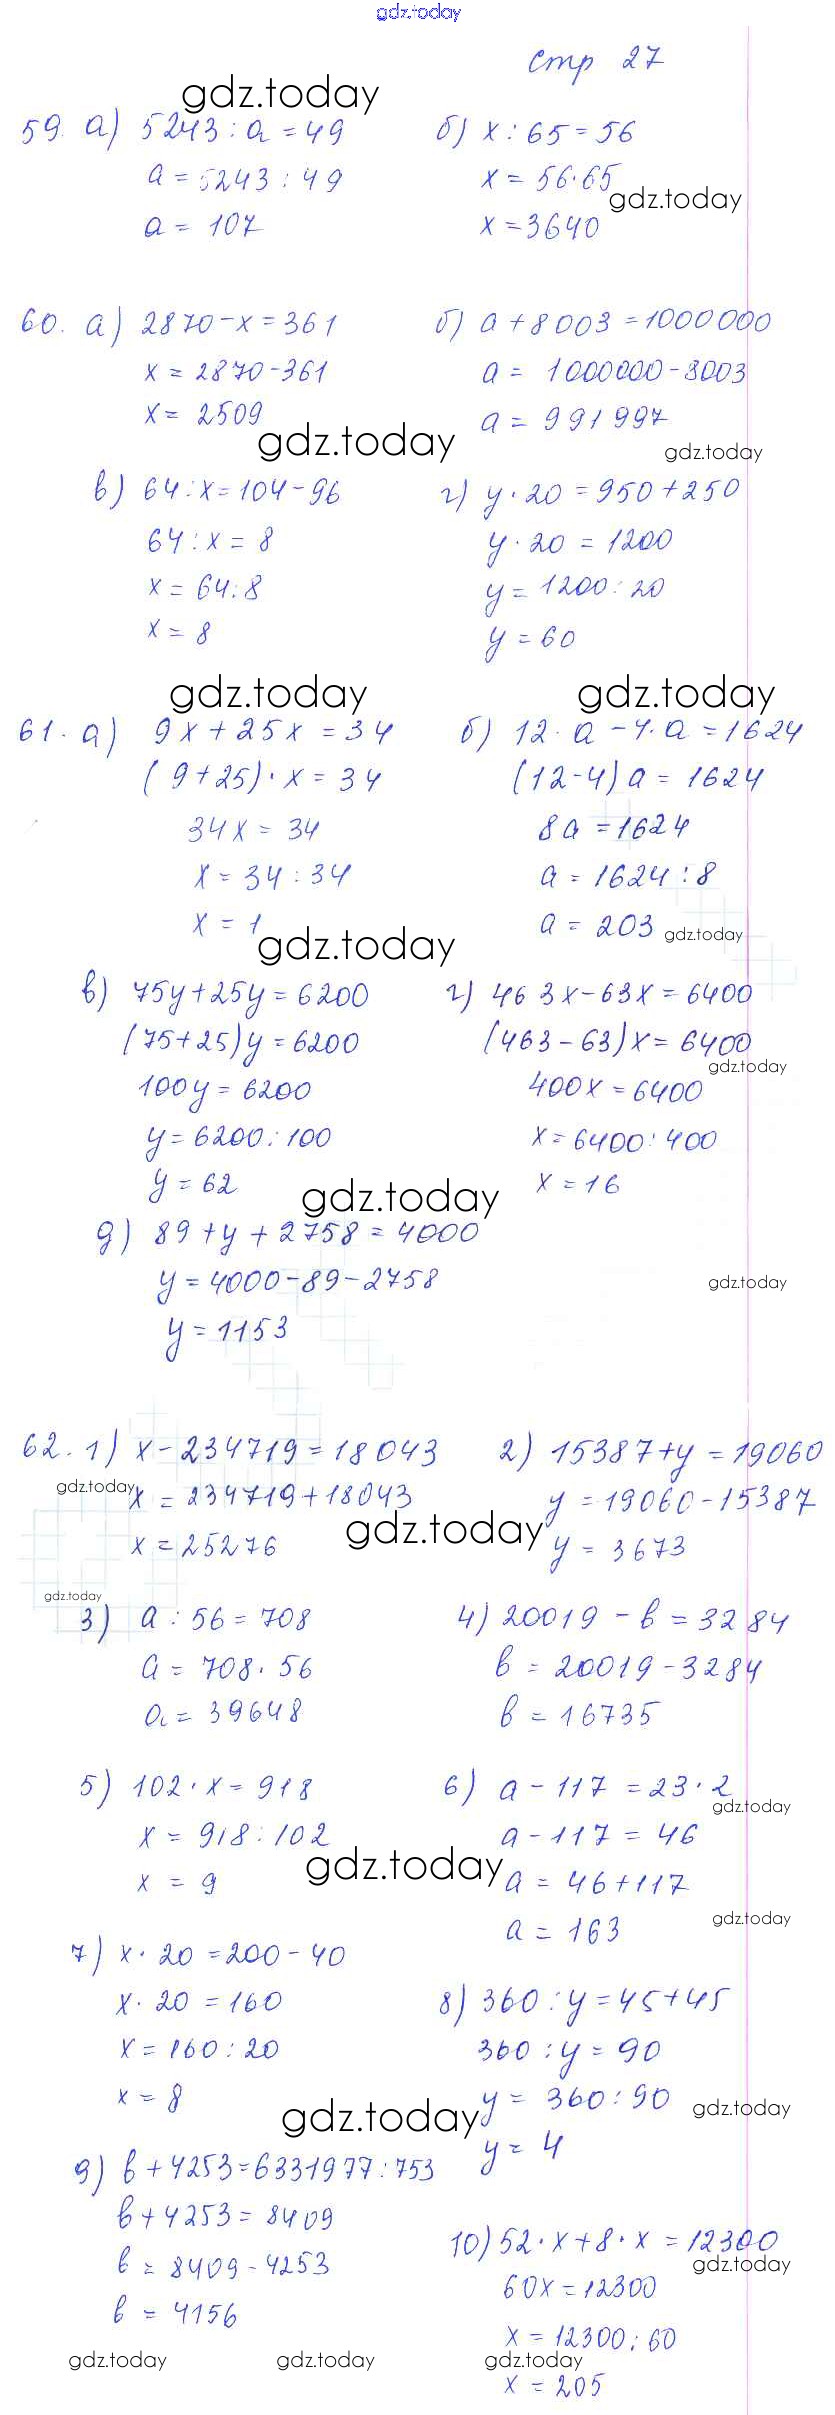 gdz.today
стр 27
gdz.today
59. а) 5243 : a = 49
a = 5243 : 49
a = 107
б) x : 65 = 56
x = 56·65
gdz.today
x = 3640
60. а) 2870 - x = 361
x = 2870 - 361
x = 2509
gdz.today
б) a + 8003 = 1000000
a = 1000000 - 8003
a = 991997
gdz.today
в) 64 : x = 104 - 96
64 : x = 8
x = 64 : 8
x = 8
г) y · 20 = 950 + 250
y · 20 = 1200
y = 1200 : 20
y = 60
gdz.today
gdz.today
61. а) 9x + 25x = 34
(9+25) · x = 34
34x = 34
x = 34 : 34
x = 1
gdz.today
б) 12 · a - 4 · a = 1624
(12-4) a = 1624
8a = 1624
a = 1624 : 8
a = 203
gdz.today
в) 75y + 25y = 6200
(75+25)y = 6200
100y = 6200
y = 6200 : 100
y = 62
gdz.today
г) 463x - 63x = 6400
(463 - 63)x = 6400
gdz.today
400x = 6400
x = 6400 : 400
x = 16
д) 89 + y + 2758 = 4000
y = 4000 - 89 - 2758
gdz.today
y = 1153
62. 1) x - 234719 = 18043
gdz.today
x = 234719 + 18043
x = 25276
gdz.today
2) 15387 + y = 19060
y = 19060 - 15387
y = 3673
gdz.today
3) a : 56 = 708
a = 708 · 56
a = 39648
4) 20019 - b = 3284
b = 20019 - 3284
b = 16735
5) 102 · x = 918
x = 918 : 102
x = 9
gdz.today
6) a - 117 = 23 · 2
gdz.today
a - 117 = 46
a = 46 + 117
a = 163
gdz.today
7) x · 20 = 200 - 40
x · 20 = 160
x = 160 : 20
x = 8
gdz.today
8) 360 : y = 45 + 45
360 : y = 90
y = 360 : 90
gdz.today
y = 4
9) b + 4253 = 6331977 : 753
b + 4253 = 8409
b = 8409 - 4253
b = 4156
10) 52 · x + 8 · x = 12300
gdz.today
60x = 12300
x = 12300 : 60
x = 205
gdz.today
gdz.today
gdz.today